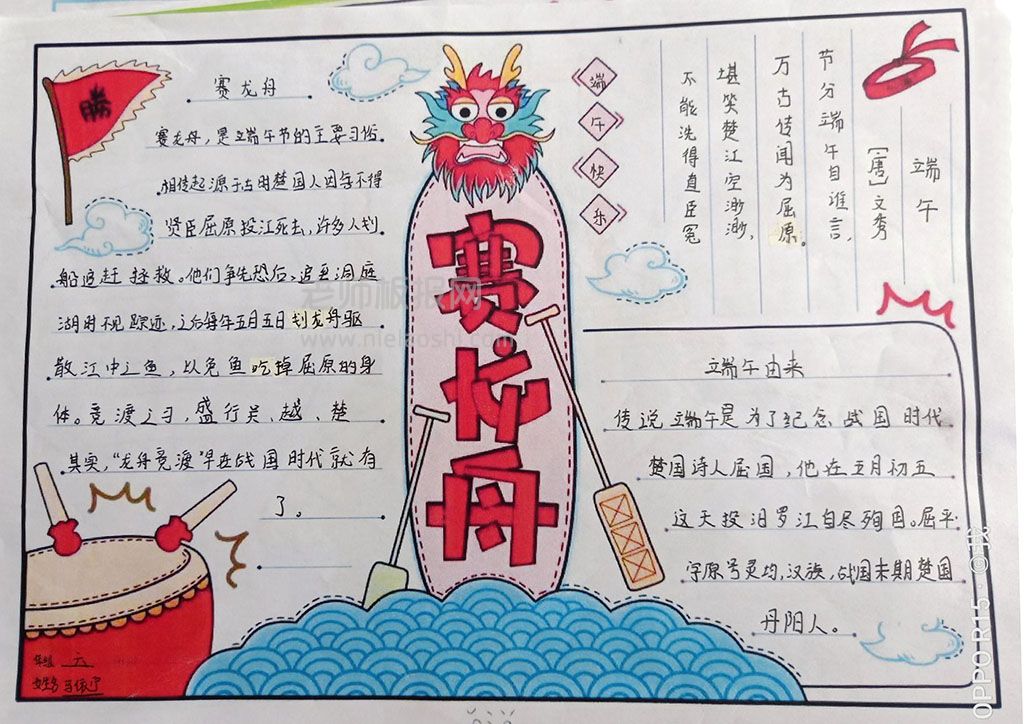 勝
赛龙舟
赛龙舟，是端午节的主要习俗。
相传起源于古时楚国人因舍不得
贤臣屈原投江死去，许多人划
船追赶拯救。他们争先恐后，追至洞庭
湖时不见踪迹，之后每年五月五日划龙舟驱
散江中之鱼，以免鱼吃掉屈原的身
体。竞渡之习，盛行吴、越、楚
其实，“龙舟竞渡”早在战国时代就有
了。
赛龙舟
端
午
快
乐
端午
[唐]文秀
节分端午自谁言，
万古传闻为屈原。
堪笑楚江空渺渺，
不能洗得直臣冤
端午由来
传说端午是为了纪念战国时代
楚国诗人屈国，他在五月初五
这天投汨罗江自尽殉国。屈平
字原号灵均，汉族，战国末期楚国
丹阳人。
班级 六
姓名
老师板报网
www.nielaoshi.com
OPPO R15 ©我